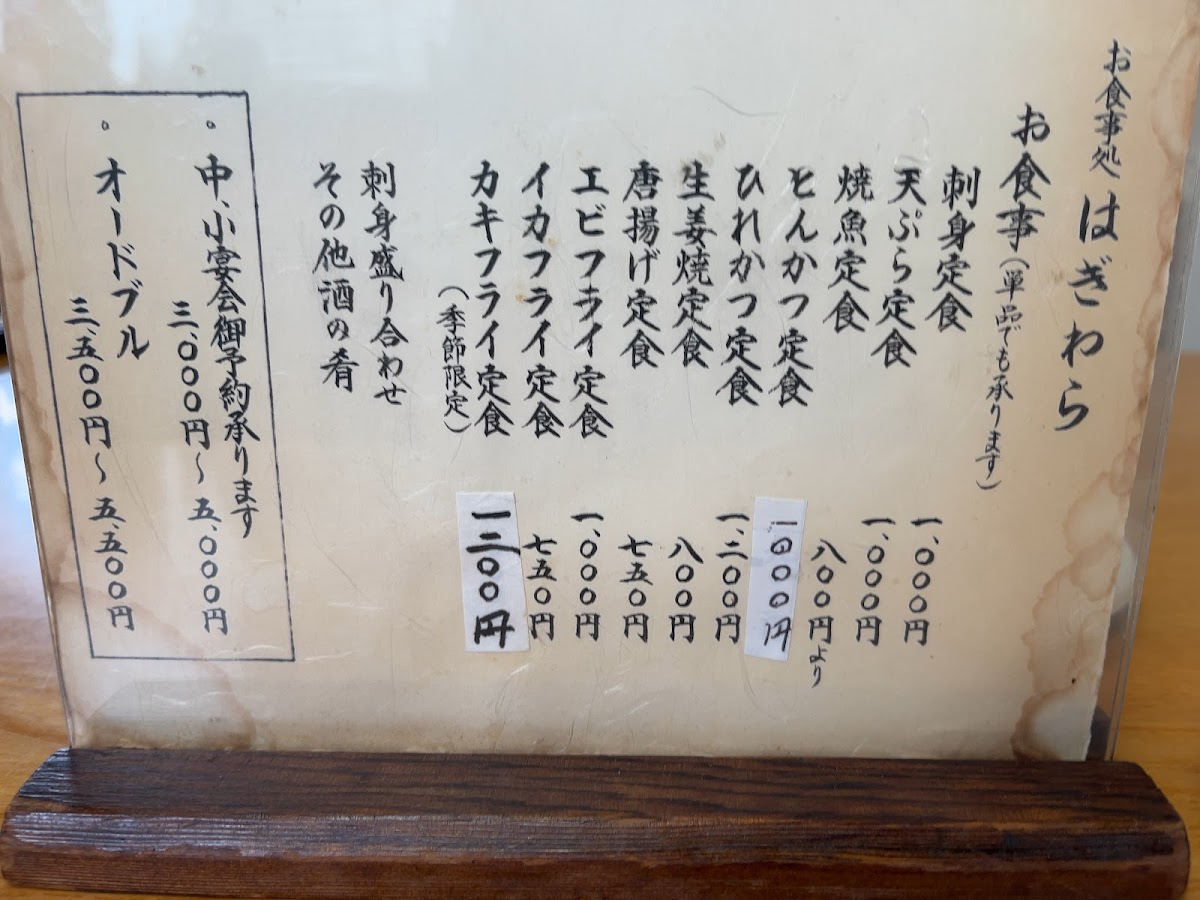 お食事処 はぎわら
お食事（単品でも承ります）
刺身定食 一、〇〇〇円
天ぷら定食 一、〇〇〇円
焼魚定食 八〇〇円より
とんかつ定食 一〇〇〇円
ひれかつ定食 一、二〇〇円
生姜焼定食 八〇〇円
唐揚げ定食 七五〇円
エビフライ定食 一、〇〇〇円
イカフライ定食 七五〇円
カキフライ定食 一二〇〇円
（季節限定）
刺身盛り合わせ
その他酒の肴
。中、小宴会御予約承ります
三、〇〇〇円～五、〇〇〇円
。オードブル
三、五〇〇円～五、五〇〇円